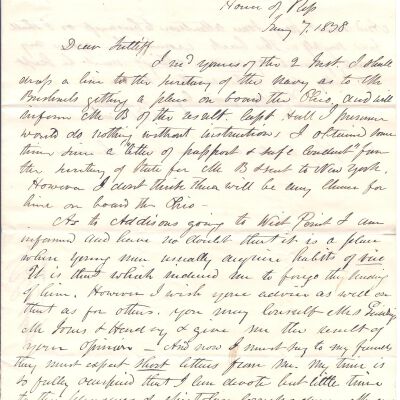 House of Rep
Jany 7. 1838
Dear
I recd yours of the 2 Inst. I shall
drop a line to the Secretary of the navy as to Mr
getting a place on board the Ohio, and will
inform Mr B of the result. Capt Hull I presume
would do nothing without instructions; I obtained some
time since a "letter of passport & safe conduct" from
the Secretary of State for Mr B & sent to New York.
However I dont think there will be any chance for
him on board the Ohio -
As to Addisons going to West Point I am
informed and have no doubt that it is a place
where young men usually acquire habits of vice
It is that which induced me to forego the sending
of him. However I wish your advice as well on
that as for others. you may consult Mrs
Mr & & give me the result of
your opinion - And now I must say to my friends
they must expect short letters from me. my time is
so fully occupied that I can devote but little time
to the